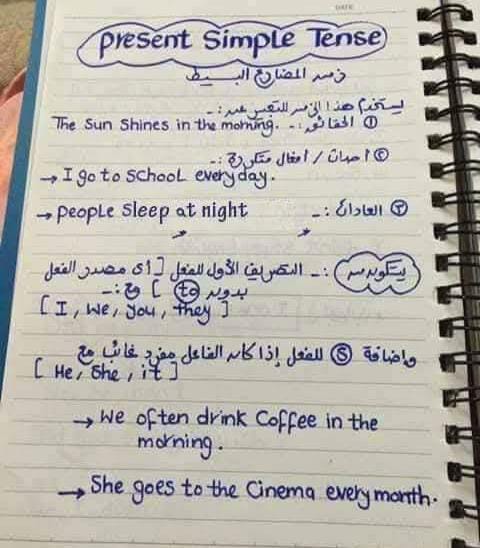 DATE
present Simple Tense
زمن المضارع البسيط
يستخدم هذا الزمن للتعبير عن :-
① الحقائق :- The Sun Shines in the morning.
② احداث / أفعال متكررة :-
→ I go to School every day.
③ العادات :- → people Sleep at night
يتكون من :- التصريف الأول للفعل [ أي مصدر الفعل
بدون to ] مع :-
[ I , we , you , they ]
وإضافة Ⓢ للفعل إذا كان الفاعل مفرد غائب مع
[ He , She , it ]
→ We often drink Coffee in the
morning.
→ She goes to the Cinema every month.